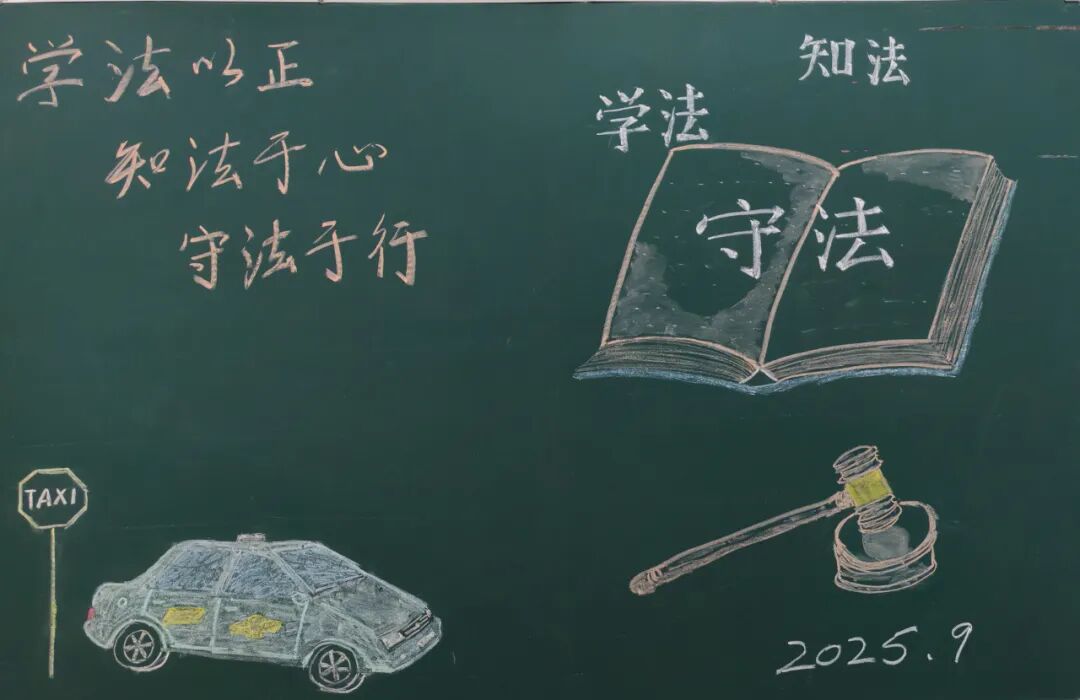 学法以正
知法于心
守法于行
知法
学法
守法
TAXI
2025.9